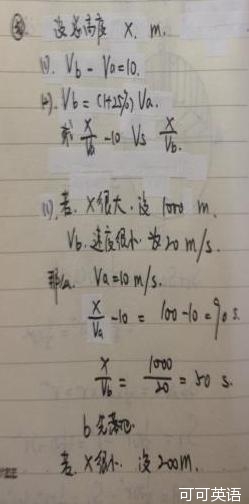 设总高度 x. m.
(1). Vb - Va = 10.
(2). Vb = (1+25%) Va.
求 x/Va - 10 Vs x/Vb.
(1). 若. x很大. 设 1000 m.
Vb. 速度很小. 为 20 m/s.
那么. Va = 10 m/s.
x/Va - 10 = 100 - 10 = 90 s.
x/Vb = 1000/20 = 50 s.
b 先落地.
若. x很小. 设 200m.
可可英语